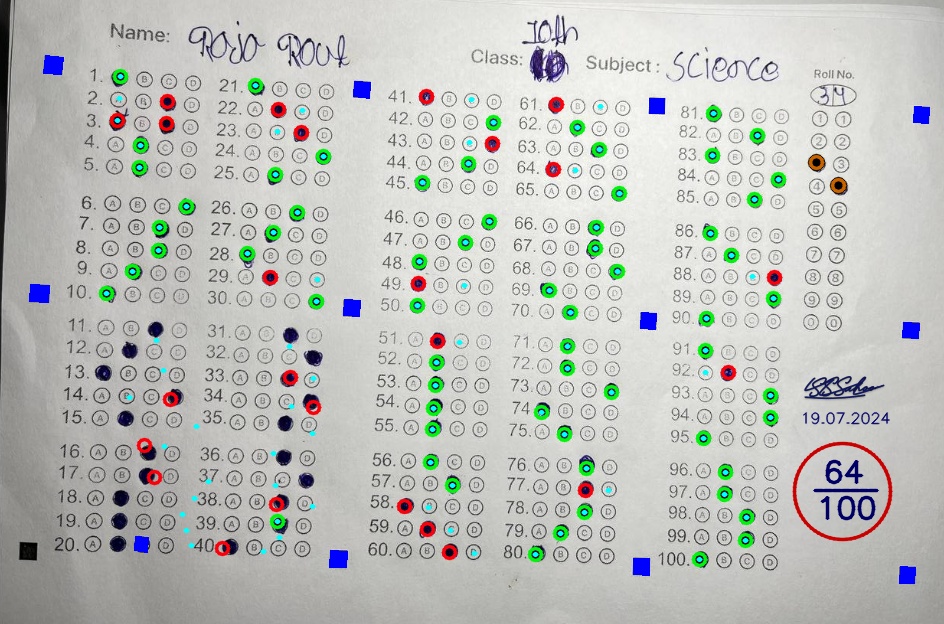 Name: Roja Rout
Class: 10th
Subject : Science
Roll No.
34
1. A B C D
2. A B C D
3. A B C D
4. A B C D
5. A B C D
6. A B C D
7. A B C D
8. A B C D
9. A B C D
10. A B C D
11. A B C D
12. A B C D
13. A B C D
14. A B C D
15. A B C D
16. A B C D
17. A B C D
18. A B C D
19. A B C D
20. A B C D
21. A B C D
22. A B C D
23. A B C D
24. A B C D
25. A B C D
26. A B C D
27. A B C D
28. A B C D
29. A B C D
30. A B C D
31. A B C D
32. A B C D
33. A B C D
34. A B C D
35. A B C D
36. A B C D
37. A B C D
38. A B C D
39. A B C D
40. A B C D
41. A B C D
42. A B C D
43. A B C D
44. A B C D
45. A B C D
46. A B C D
47. A B C D
48. A B C D
49. A B C D
50. A B C D
51. A B C D
52. A B C D
53. A B C D
54. A B C D
55. A B C D
56. A B C D
57. A B C D
58. A B C D
59. A B C D
60. A B C D
61. A B C D
62. A B C D
63. A B C D
64. A B C D
65. A B C D
66. A B C D
67. A B C D
68. A B C D
69. A B C D
70. A B C D
71. A B C D
72. A B C D
73. A B C D
74. A B C D
75. A B C D
76. A B C D
77. A B C D
78. A B C D
79. A B C D
80. A B C D
81. A B C D
82. A B C D
83. A B C D
84. A B C D
85. A B C D
86. A B C D
87. A B C D
88. A B C D
89. A B C D
90. A B C D
91. A B C D
92. A B C D
93. A B C D
94. A B C D
95. A B C D
96. A B C D
97. A B C D
98. A B C D
99. A B C D
100. A B C D
1 1
2 2
3
4
5 5
6 6
7 7
8 8
9 9
0 0
19.07.2024
64
100